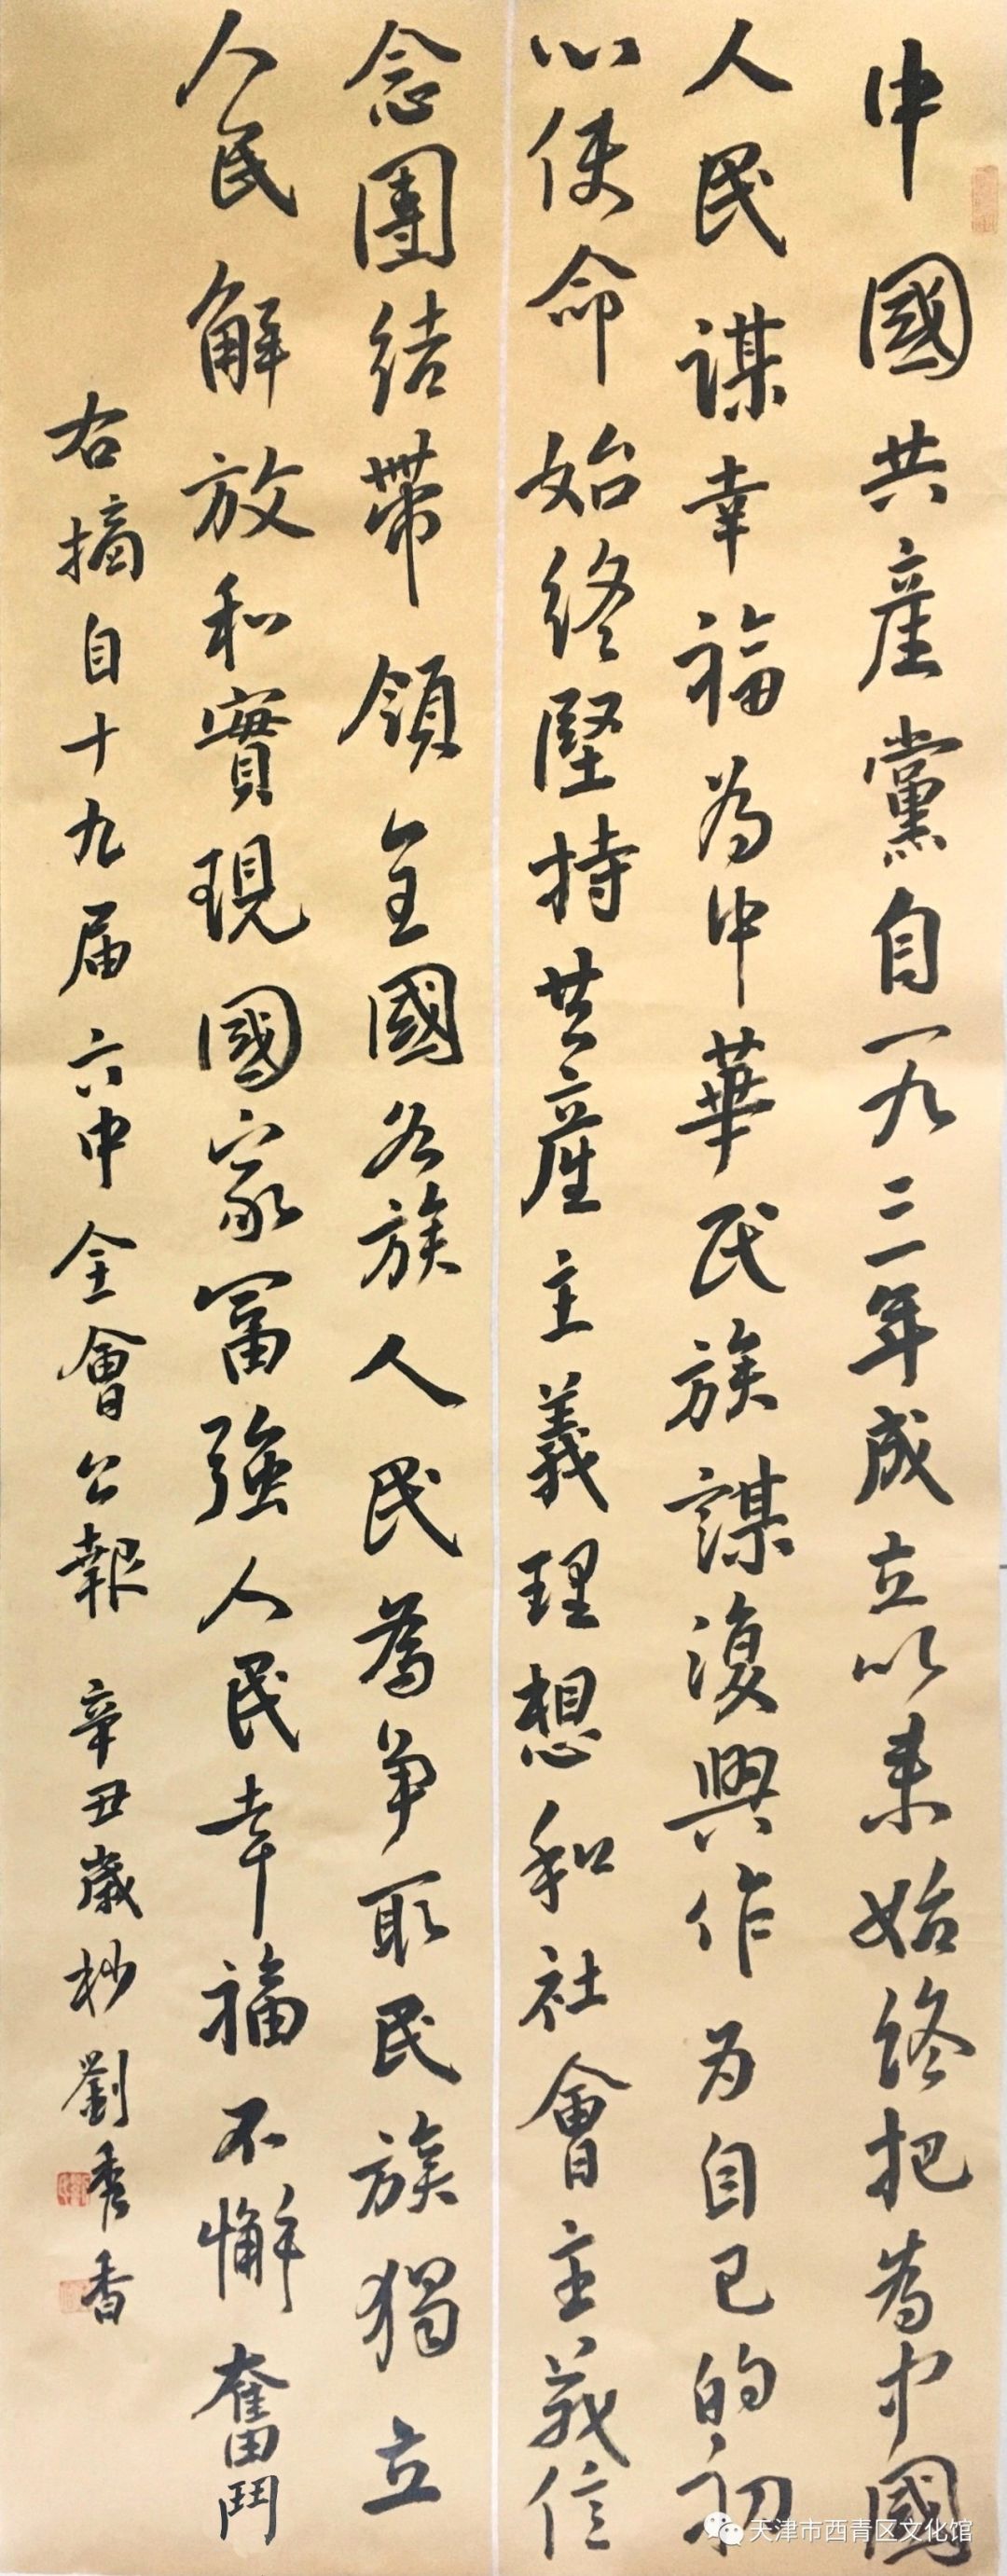 中國共產黨自一九二一年成立以来始終把為中國
人民謀幸福为中華民族謀復興作为自己的初
心使命始終堅持共產主義理想和社會主義信
念團結帶領全國各族人民為爭取民族獨立
人民解放和實現國家富強人民幸福不懈奮鬥
右摘自十九届六中全會公報 辛丑歲杪劉秀香
天津市西青区文化馆